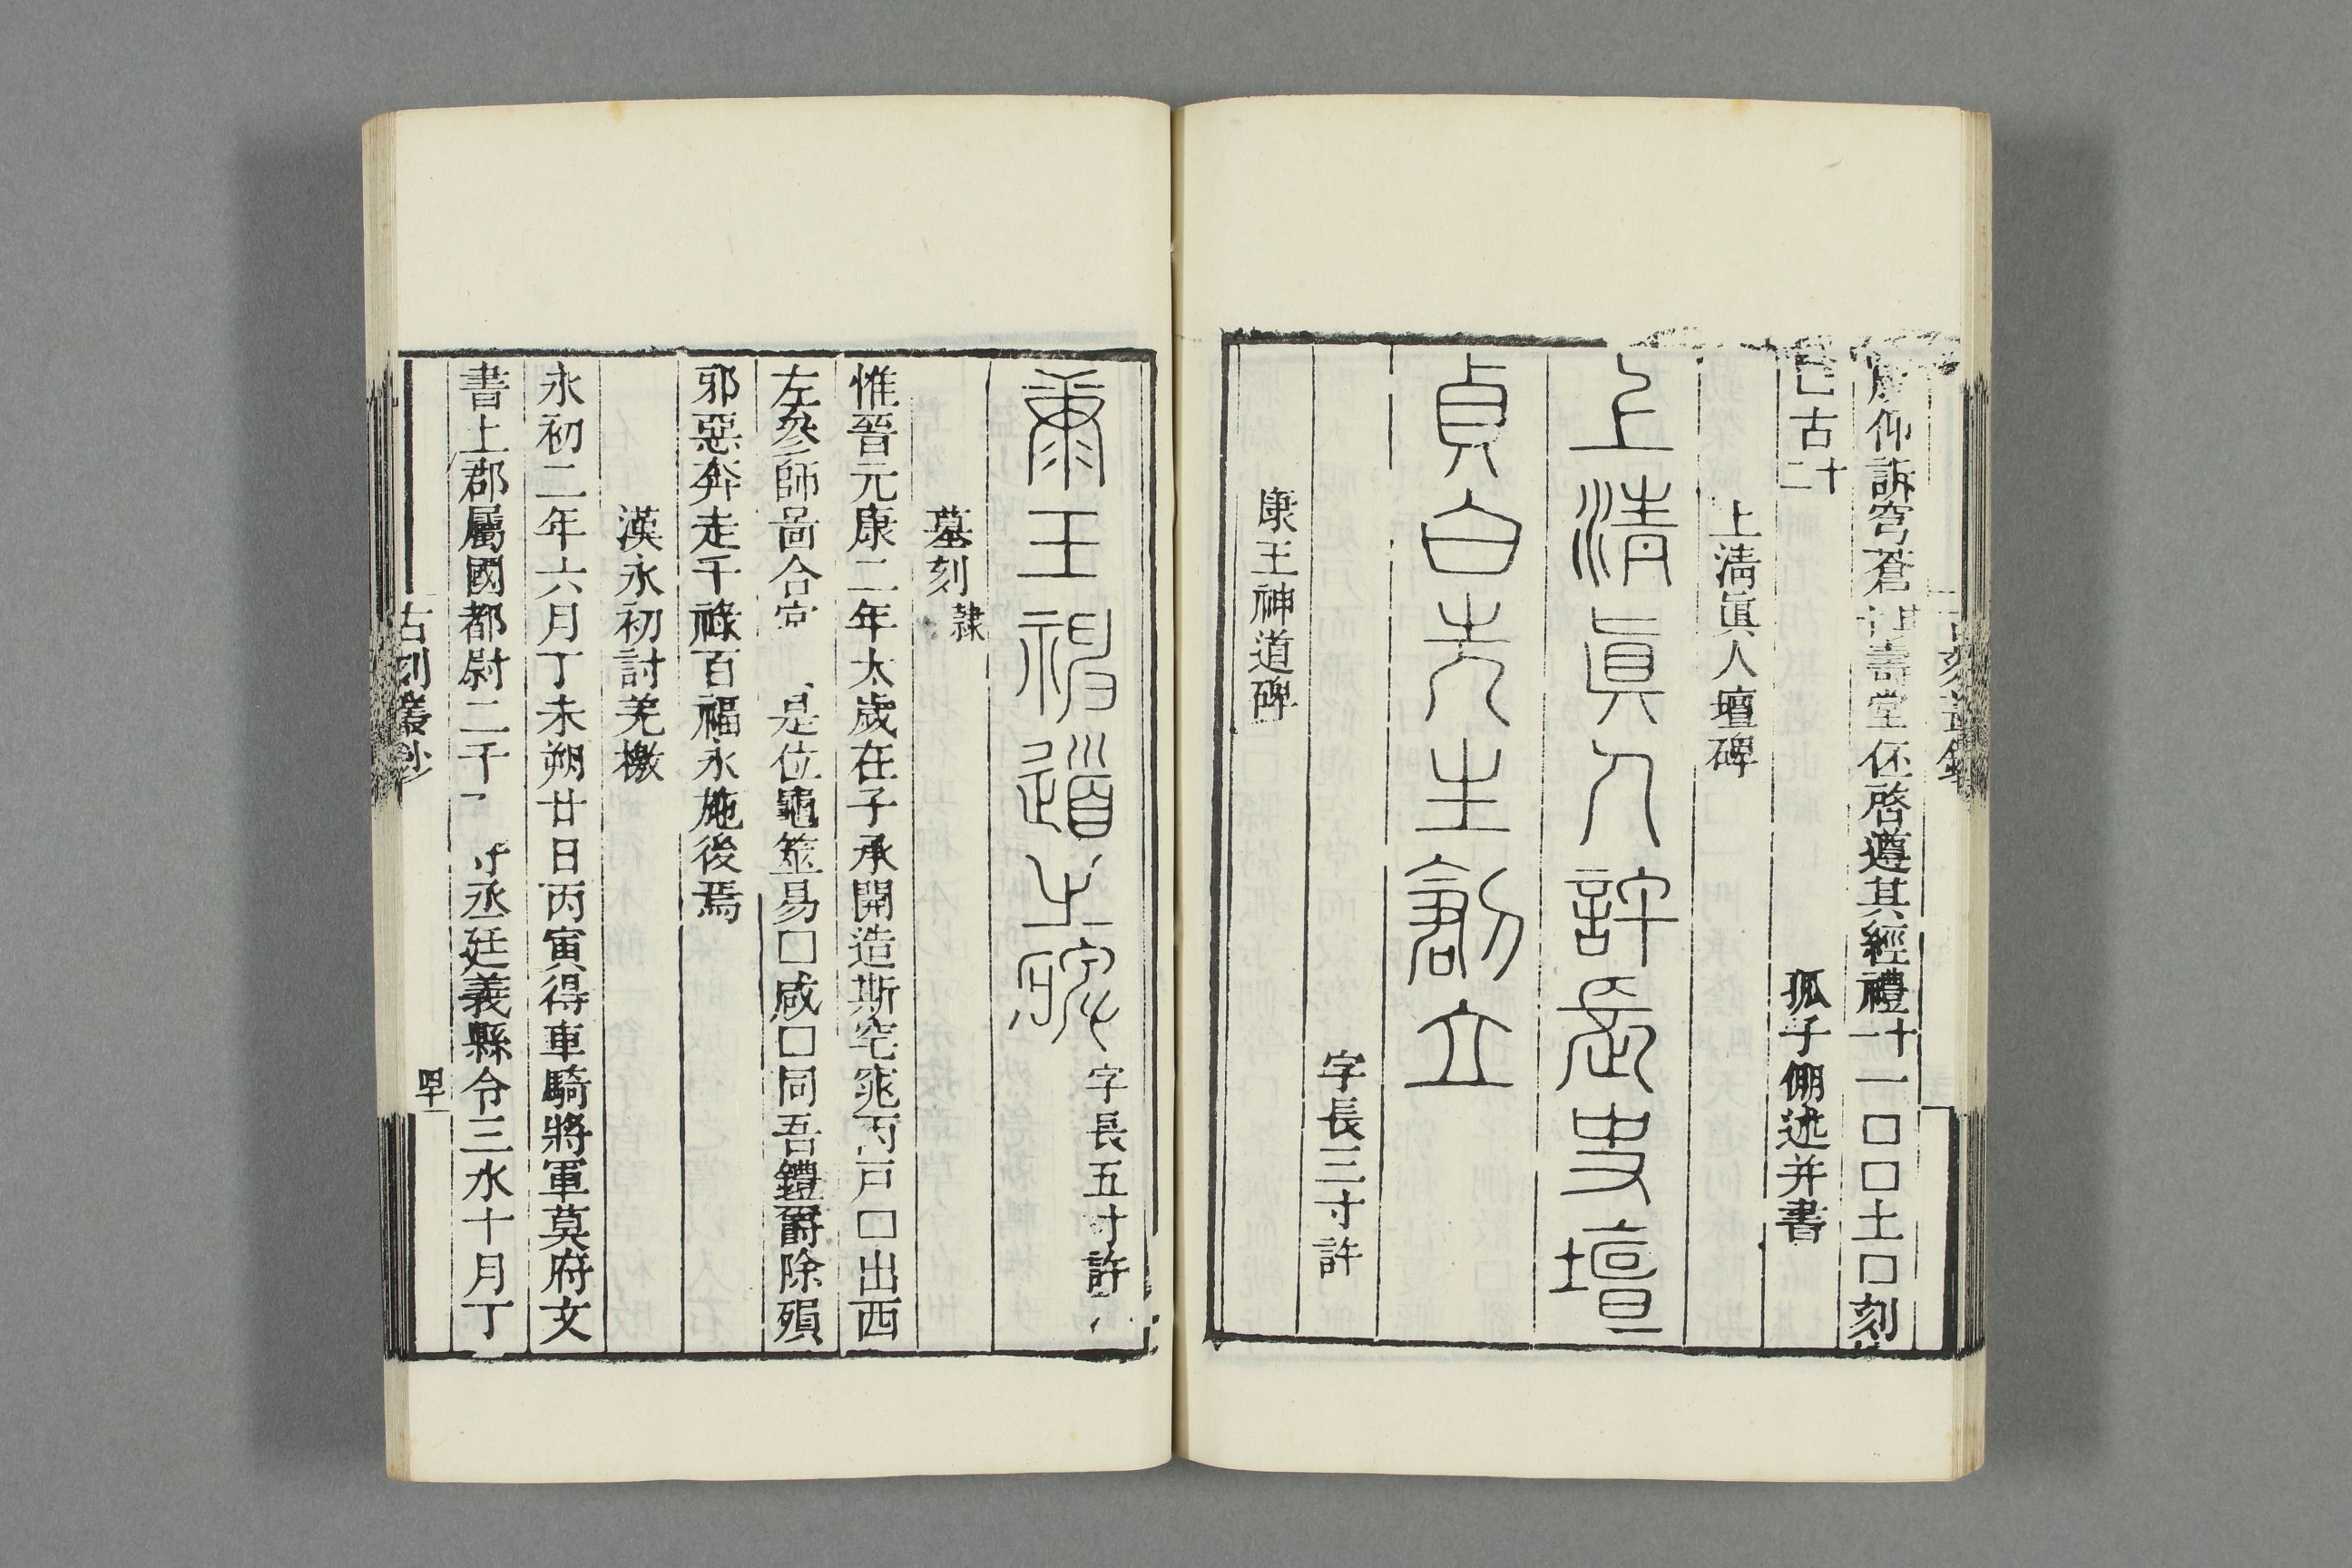 仰訴穹蒼 壽堂伾啓遵其經禮十一□□土□刻
古十二
孤子倗述并書
上淸眞人壇碑
上清眞人許長史壇
貞白先生剏立
字長三寸許
康王神道碑
康王神道之碑 字長五寸許
墓刻 隸
惟晉元康二年太歲在子承開造斯窀窆丙戸□出西
左參師啚合 是位龜筮易□咸□同吾鐙爵除殞
邪惡奔走千祿百福永施後焉
漢永初討羌檄
永初二年六月丁未朔廿日丙寅得車騎將軍莫府文
書上郡屬國都尉二千 丞廷義縣令三水十月丁
古刻叢鈔